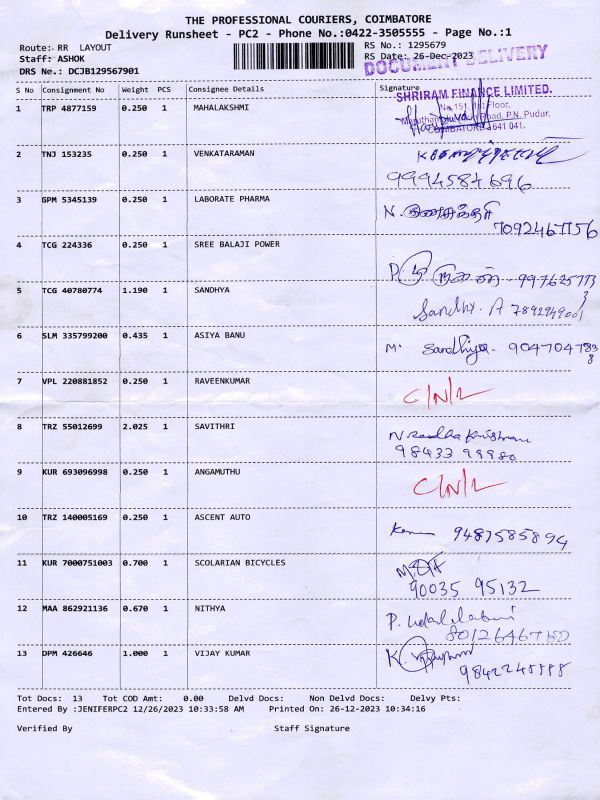 THE PROFESSIONAL COURIERS, COIMBATORE
Delivery Runsheet - PC2 - Phone No.:0422-3505555 - Page No.:1
Route:- RR LAYOUT RS No.: 1295679
Staff: ASHOK RS Date: 26-Dec-2023
DOCUMENT DELIVERY
DRS No.: DCJB129567901
S No Consignment No Weight PCS Consignee Details Signature
SHRIRAM FINANCE LIMITED.
1 TRP 4877159 0.250 1 MAHALAKSHMI
No.151, 1st Floor,
Road, P.N. Pudur,
COIMBATORE 641 041.
2 TNJ 153235 0.250 1 VENKATARAMAN
9994584696
3 GPM 5345139 0.250 1 LABORATE PHARMA N.
7092467156
4 TCG 224336 0.250 1 SREE BALAJI POWER
P.
5 TCG 40780774 1.190 1 SANDHYA Sandhy. A
6 SLM 335799200 0.435 1 ASIYA BANU M. Sandhiya -
7 VPL 220881852 0.250 1 RAVEENKUMAR C/N/L
8 TRZ 55012699 2.025 1 SAVITHRI
98433
9 KUR 693096998 0.250 1 ANGAMUTHU C/N/L
10 TRZ 140005169 0.250 1 ASCENT AUTO 9487585894
11 KUR 7000751003 0.700 1 SCOLARIAN BICYCLES
90035 95132
12 MAA 862921136 0.670 1 NITHYA P.
13 DPM 426646 1.000 1 VIJAY KUMAR K.
Tot Docs: 13 Tot COD Amt: 0.00 Delvd Docs: Non Delvd Docs: Delvy Pts:
Entered By :JENIFERPC2 12/26/2023 10:33:58 AM Printed On: 26-12-2023 10:34:16
Verified By Staff Signature